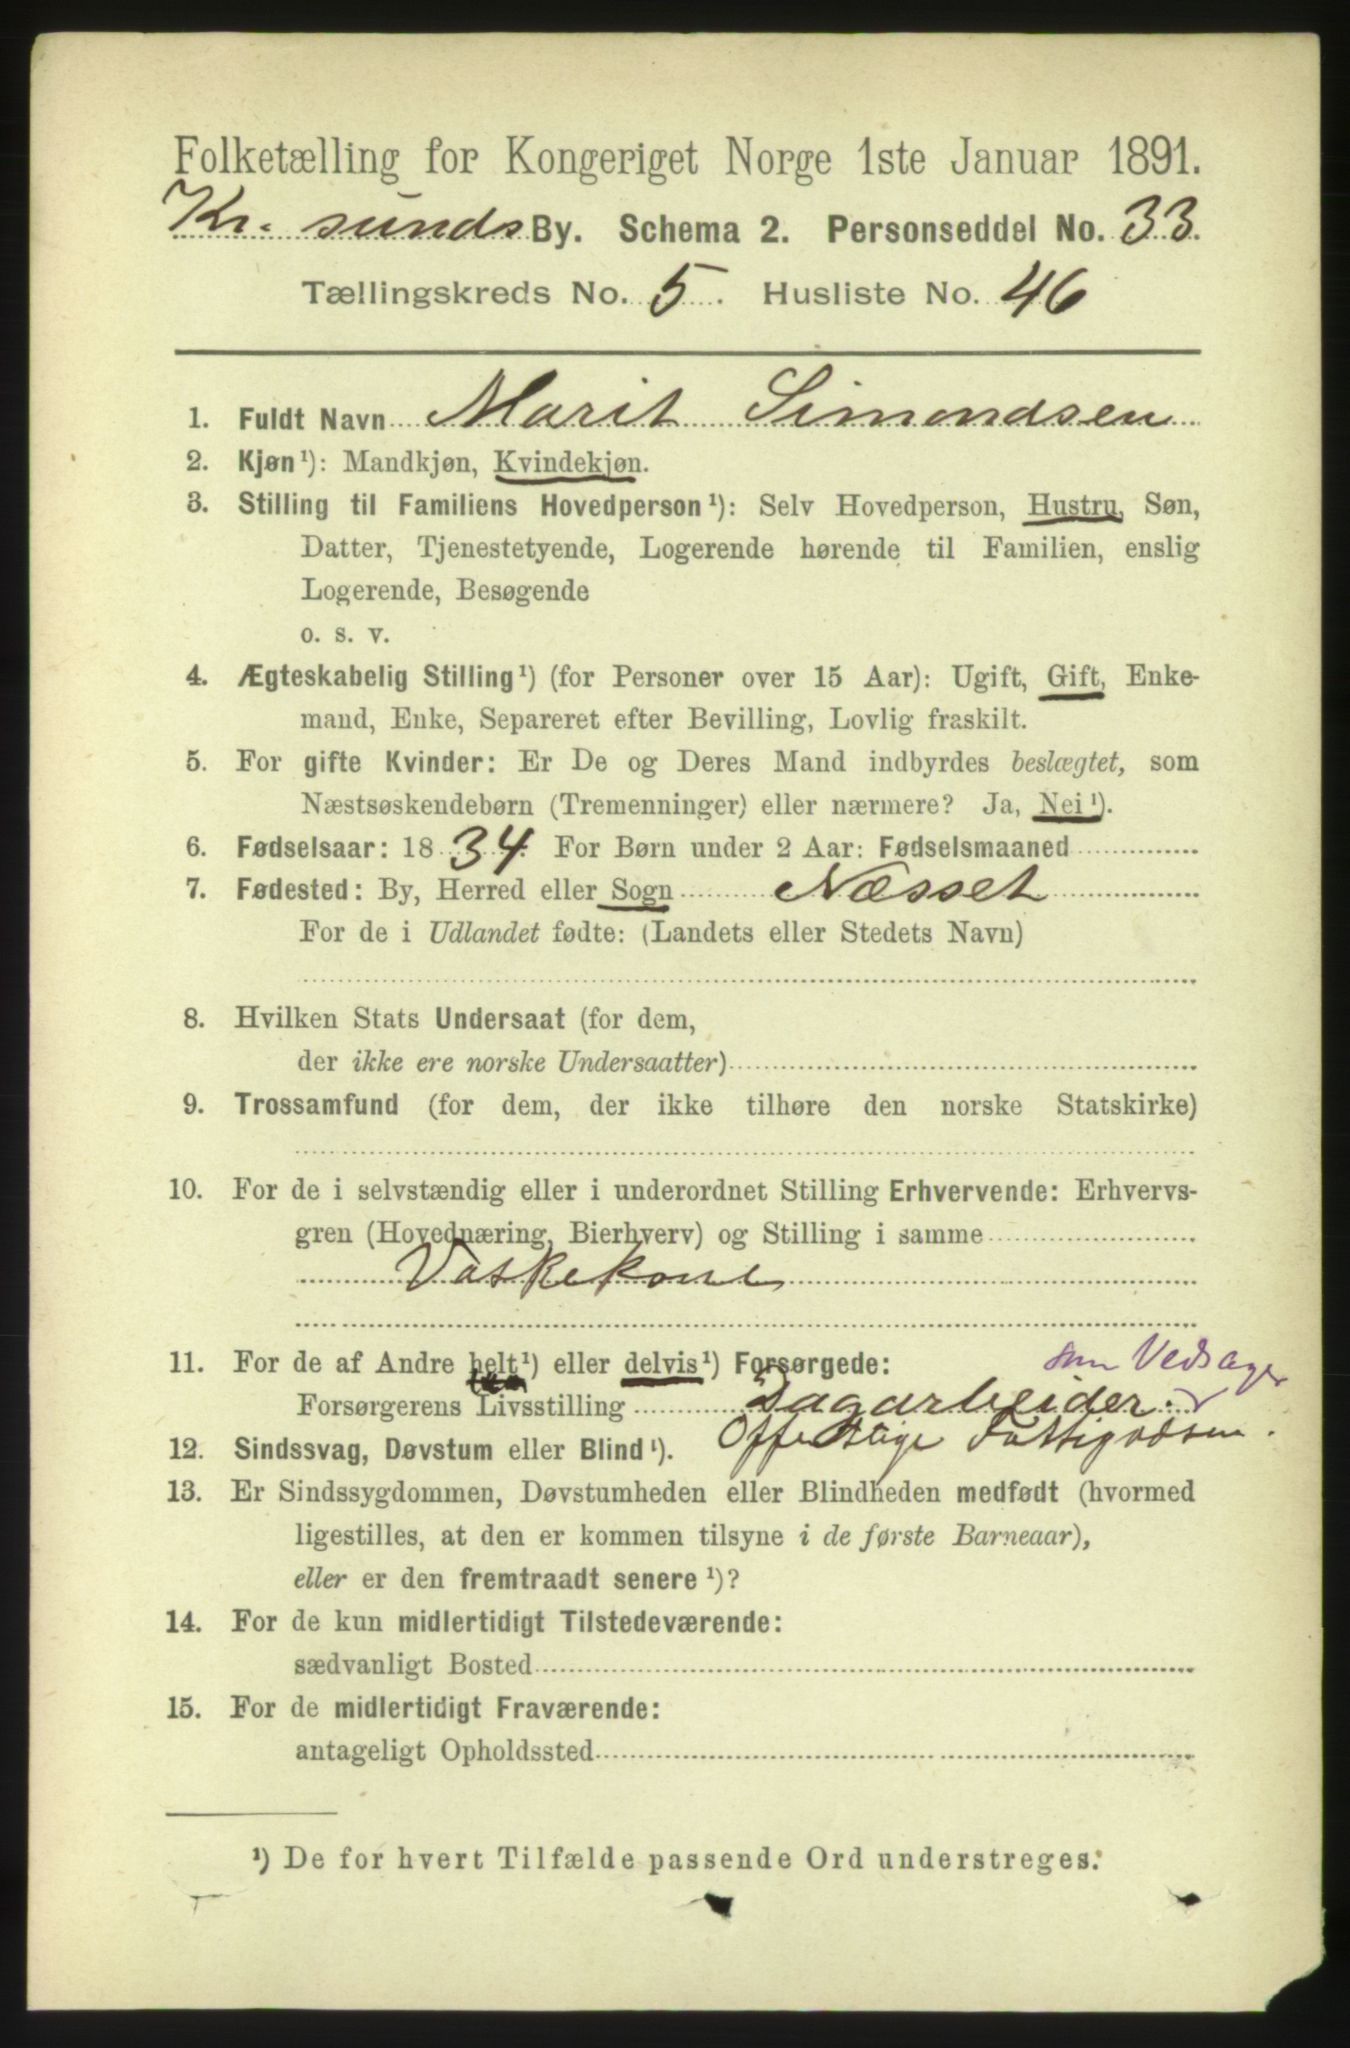 Folketælling for Kongeriget Norge 1ste Januar 1891.
Kr. sunds By. Schema 2. Personseddel No. 33.
Tællingskreds No. 5. Husliste No. 46
1. Fuldt Navn Marit Simondsen
2. Kjøn¹): Mandkjøn, Kvindekjøn.
3. Stilling til Familiens Hovedperson¹): Selv Hovedperson, Hustru, Søn,
Datter, Tjenestetyende, Logerende hørende til Familien, enslig
Logerende, Besøgende
o. s. v.
4. Ægteskabelig Stilling¹) (for Personer over 15 Aar): Ugift, Gift, Enke-
mand, Enke, Separeret efter Bevilling, Lovlig fraskilt.
5. For gifte Kvinder: Er De og Deres Mand indbyrdes beslægtet, som
Næstsøskendebørn (Tremenninger) eller nærmere? Ja, Nei¹).
6. Fødselsaar: 1834. For Børn under 2 Aar: Fødselsmaaned
7. Fødested: By, Herred eller Sogn Næsset
For de i Udlandet fødte: (Landets eller Stedets Navn)
8. Hvilken Stats Undersaat (for dem,
der ikke ere norske Undersaatter)
9. Trossamfund (for dem, der ikke tilhøre den norske Statskirke)
10. For de i selvstændig eller i underordnet Stilling Erhvervende: Erhvervs-
gren (Hovednæring, Bierhverv) og Stilling i samme
Vaskekone
11. For de af Andre helt¹) eller delvis¹) Forsørgede: Vedsager
Forsørgerens Livsstilling Dagarbeider.
Offentlige Fattigvæsen.
12. Sindssvag, Døvstum eller Blind¹).
13. Er Sindssygdommen, Døvstumheden eller Blindheden medfødt (hvormed
ligestilles, at den er kommen tilsyne i de første Barneaar),
eller er den fremtraadt senere¹)?
14. For de kun midlertidigt Tilstedeværende:
sædvanligt Bosted
15. For de midlertidigt Fraværende:
antageligt Opholdssted
¹) De for hvert Tilfælde passende Ord understreges.